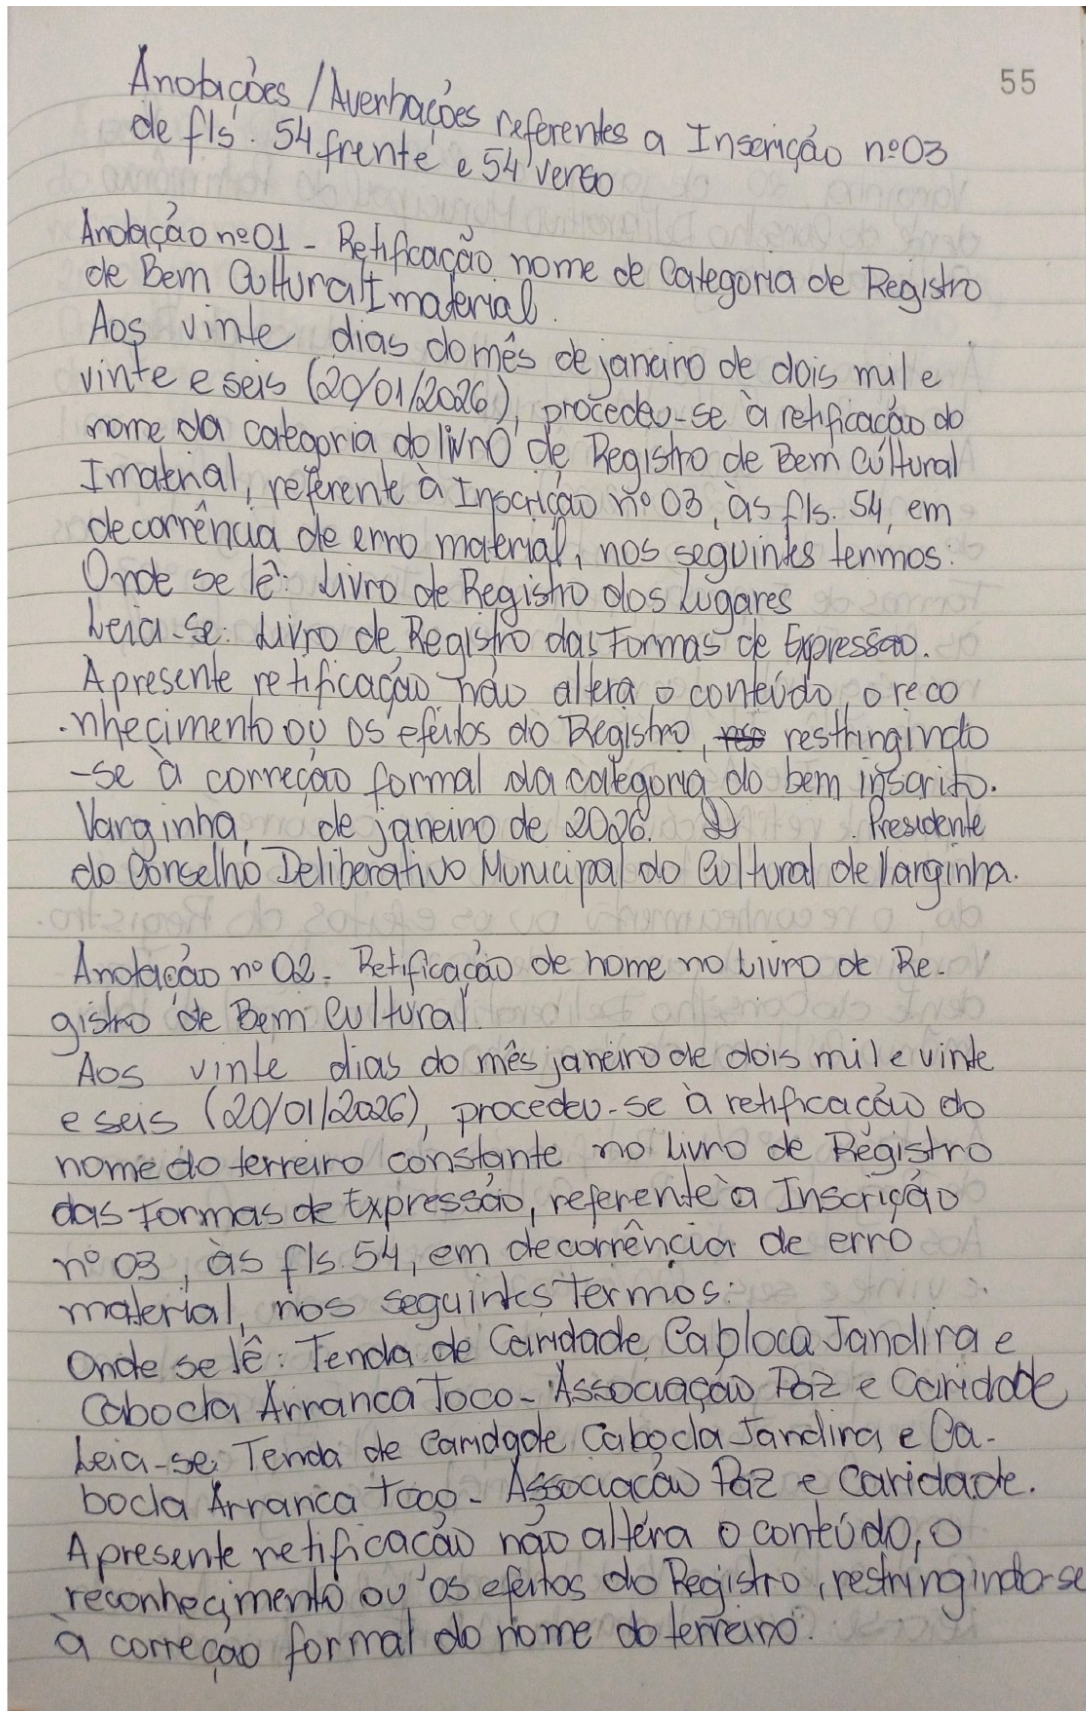 55
Anotações / Averbações referentes a Inscrição nº 03
de fls. 54 frente e 54 verso
Anotação nº 01 - Retificação nome de Categoria de Registro
de Bem Cultural Imaterial.
Aos vinte dias do mês de janeiro de dois mil e
vinte e seis (20/01/2026), procedeu-se à retificação do
nome da categoria do livro de Registro de Bem Cultural
Imaterial, referente à Inscrição nº 03, às fls. 54, em
decorrência de erro material, nos seguintes termos:
Onde se lê: Livro de Registro dos Lugares
Leia-se: Livro de Registro das Formas de Expressão.
A presente retificação não altera o conteúdo, o reco
-nhecimento ou os efeitos do Registro, restringindo
-se à correção formal da categoria do bem inscrito.
Varginha, de janeiro de 2026. . Presidente
do Conselho Deliberativo Municipal do Cultural de Varginha.
Anotação nº 02 - Retificação de nome no Livro de Re-
gistro de Bem Cultural
Aos vinte dias do mês janeiro de dois mil e vinte
e seis (20/01/2026), procedeu-se à retificação do
nome do terreiro constante no livro de Registro
das Formas de Expressão, referente à Inscrição
nº 03, às fls. 54, em decorrência de erro
material, nos seguintes termos:
Onde se lê: Tenda de Caridade Cabloca Jandira e
Cabocla Arranca Toco - Associação Paz e Caridade
Leia-se: Tenda de Caridade Cabocla Jandira e Ca-
bocla Arranca Toco - Associação Paz e Caridade.
A presente retificação não altera o conteúdo, o
reconhecimento ou os efeitos do Registro, restringindo-se
à correção formal do nome do terreiro.